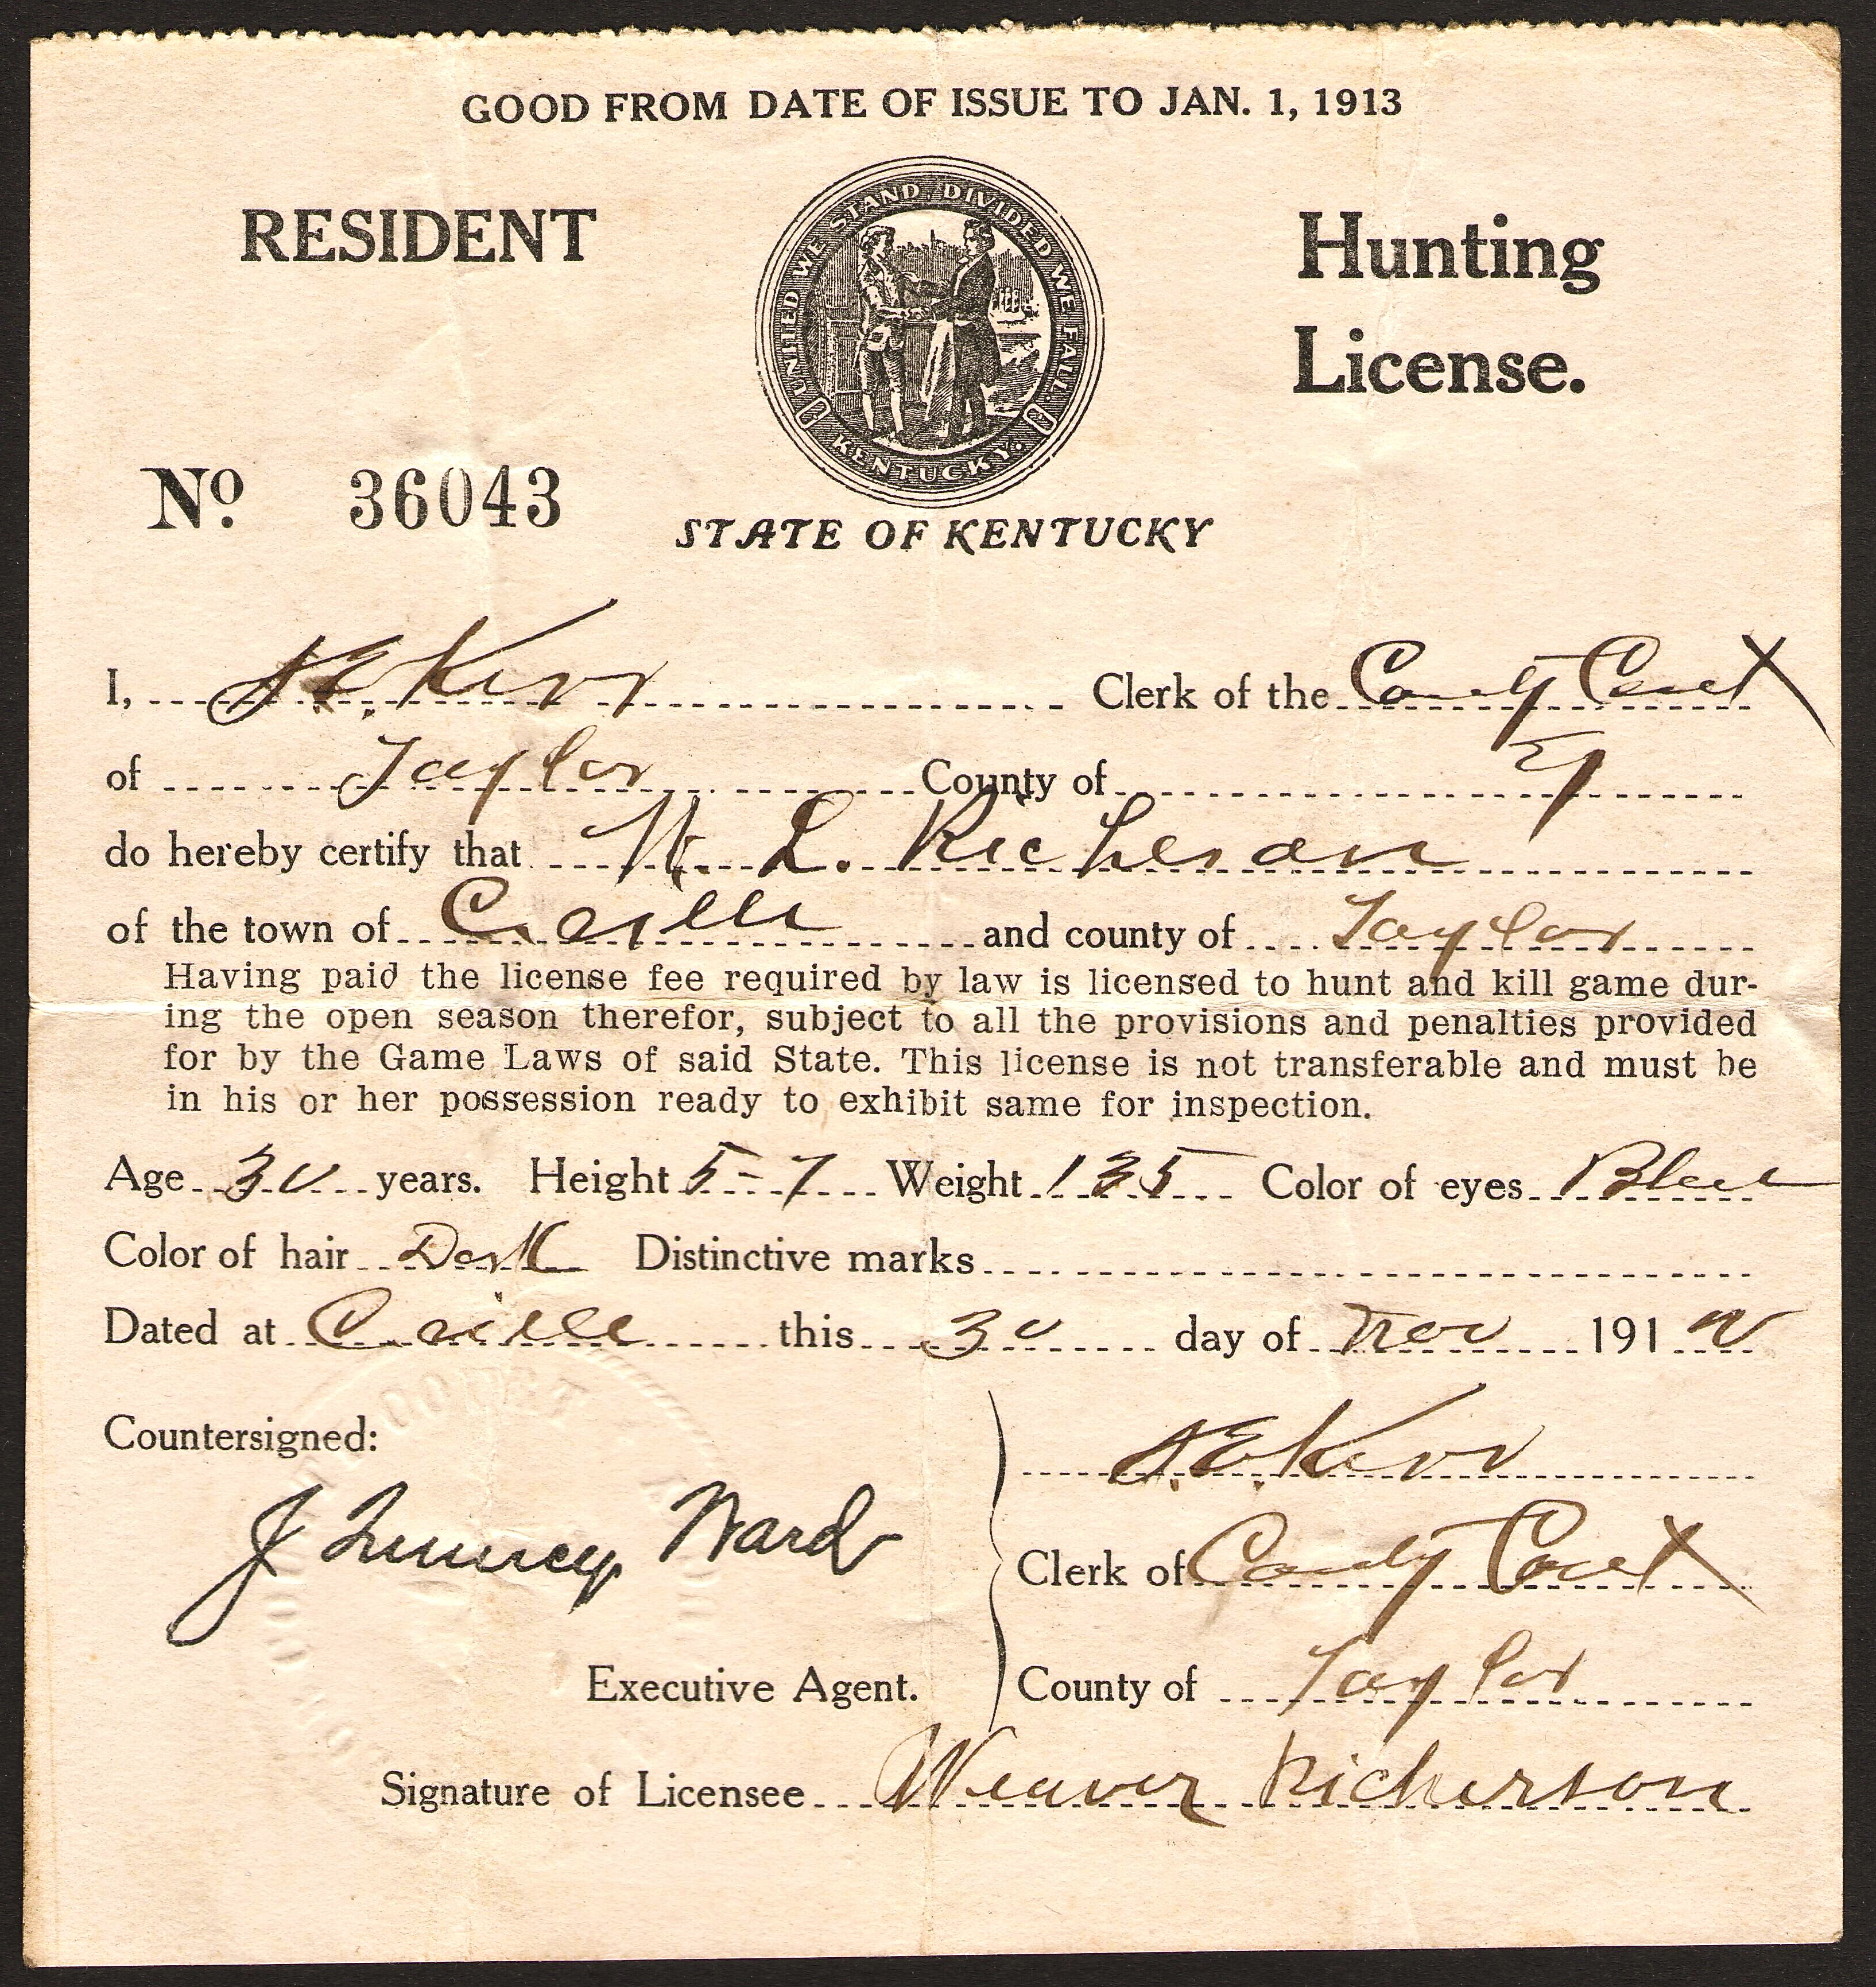 GOOD FROM DATE OF ISSUE TO JAN. 1, 1913
RESIDENT
UNITED WE STAND, DIVIDED WE FALL.
KENTUCKY.
Hunting
License.
No. 36043
STATE OF KENTUCKY
I, Kerr Clerk of the County Court
of Taylor County of Ky
do hereby certify that W. L. Richerson
of the town of C.ville and county of Taylor
Having paid the license fee required by law is licensed to hunt and kill game dur-
ing the open season therefor, subject to all the provisions and penalties provided
for by the Game Laws of said State. This license is not transferable and must be
in his or her possession ready to exhibit same for inspection.
Age 30 years. Height 5-7 Weight 135 Color of eyes Blue
Color of hair Dark Distinctive marks
Dated at C.ville this 30 day of Nov 1912
Countersigned:
Kerr
J Quincy Ward
Clerk of County Court
Executive Agent.
County of Taylor
Signature of Licensee Weaver Richerson